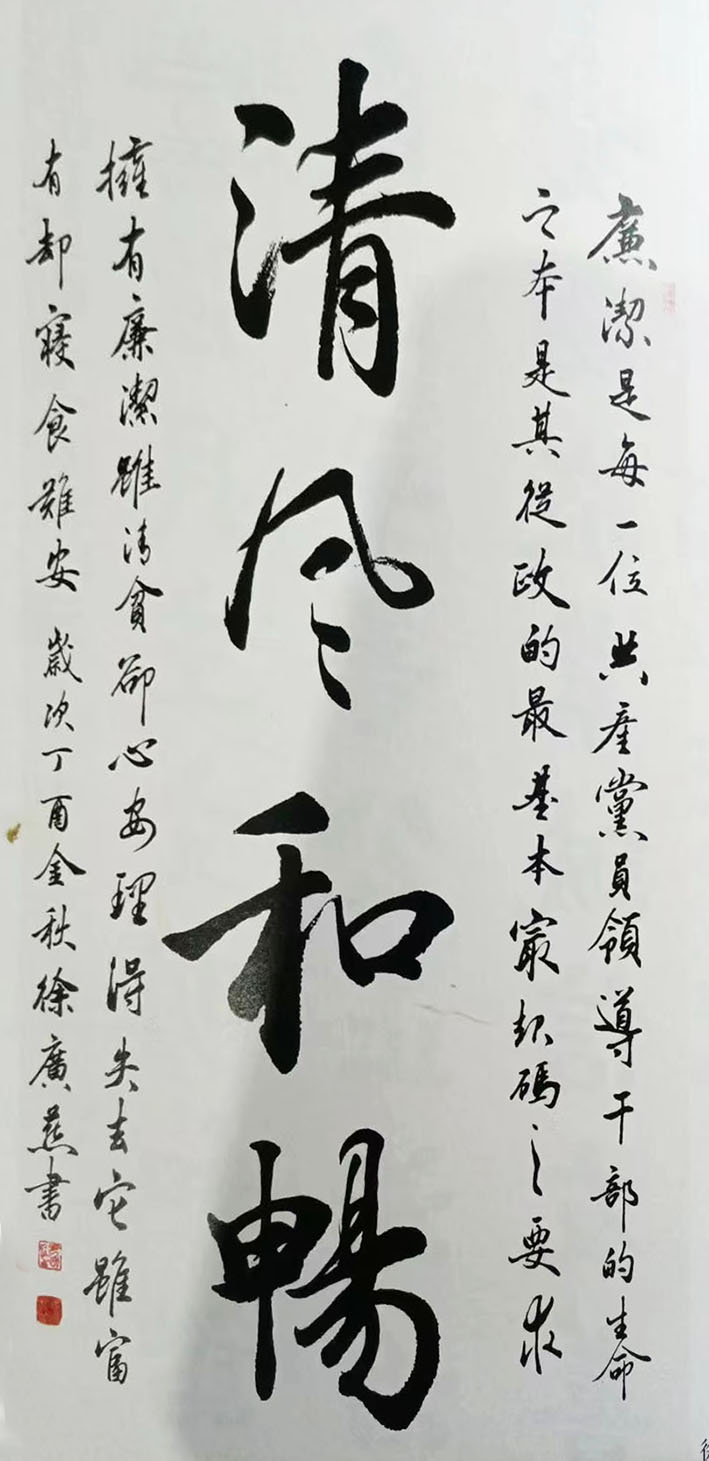 廉潔是每一位共產黨員領導干部的生命
之本是其從政的最基本最起碼之要求
清风和暢
擁有廉潔雖清貧卻心安理得失去它雖富
有却寢食難安 歲次丁酉金秋徐廣燕書